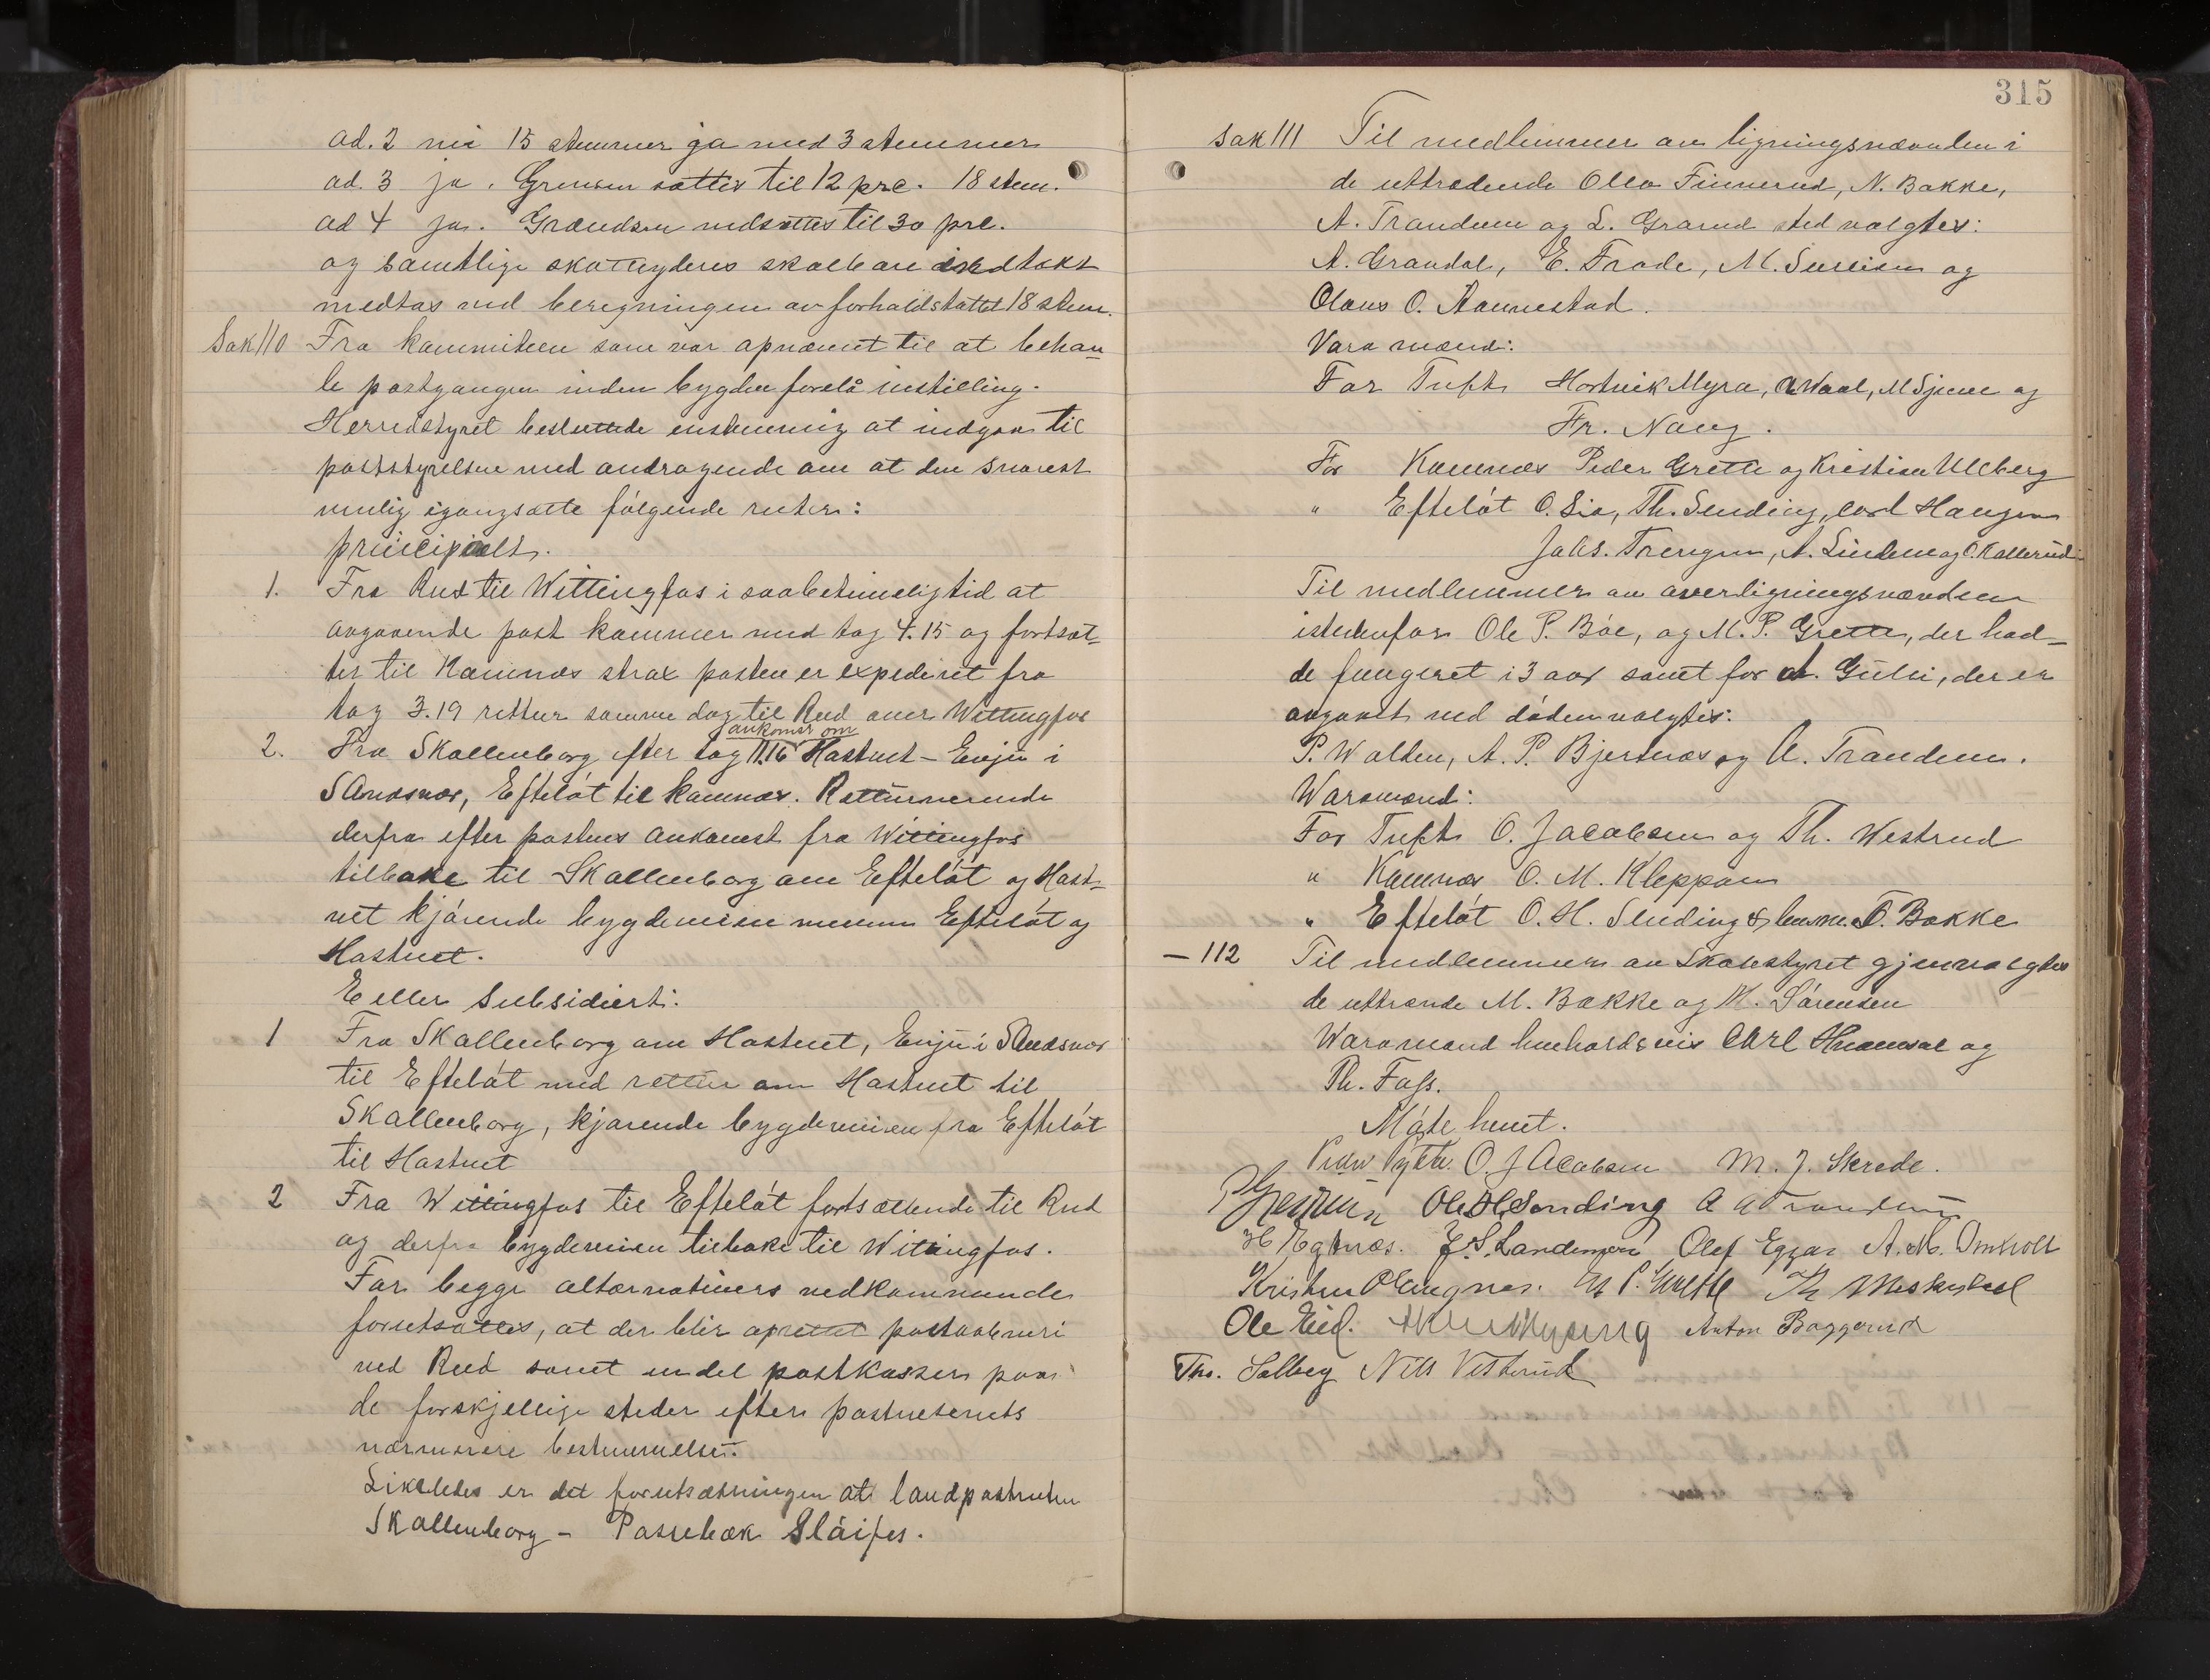 ad. 2 nei 15 stemmer ja med 3 stemmer
ad. 3 ja. Grensen sættes til 12 prc. 18 stem.
ad 4 ja. Grændsen nedsættes til 30 prc.
og samtlige skatteyderes skatbare indtækt
medtas ved beregningen av forholdstallet 18 stem.
Sak 110 Fra kommiteen som var opnævnt til at behan
le postgangen inden bygden forelå instilling.
Herredstyret besluttede enstemmig at indgaa til
poststyrelsen med andragende om at den snarest
mulig igangsætte følgende ruter:
principielt.
1. Fra Rud til Wittingfos i saa betimelig tid at
avgaaende post kommer med tog 4.15 og fortsæt-
tes til Komnæs strax posten er expederet fra
tog 3.19 rettur samme dag til Rud over Wittingfos
ankomer om
2. Fra Skollenborg efter tog 11.16 Hostvet – Enju i
Sandsvær, Efteløt til Komnæs. Retturnerende
derfra efter postens ankomst fra Wittingfos
tilbake til Skollenborg om Efteløt og Host-
vet kjørende bygdeveien mellem Efteløt og
Hostvet.
Eller subsidiert:
1 Fra Skollenborg om Hostvet, Enju i Sandsvær
til Efteløt med rettur om Hostvet til
Skollenborg, kjørende bygdeveien fra Efteløt
til Hostvet
2 Fra Wittingfos til Efteløt fortsættende til Rud
og derfra bygdeveien tilbake til Wittingfos.
For begge alternativers vedkommende
forutsættes, at der blir oprettet postaabneri
ved Rud samt en del postkasser paa
de forskjellige steder efter postvesenets
nærmere bestemmelse.
Likeledes er det forutsætningen at landpostruten
Skollenborg – Passebæk sløifes.
315
Sak 111 Til medlemmer av ligningsnævnden i
de uttrædende Olea Finnerud, N. Bakke,
A. Trandem og L. Grarud sted valgtes:
A. Grandal, E. Frode, M. og
Olaus O. Aannestad.
Vara mænd:
For Tufte Hostvik Myra, Waal, M og
Fr. Naug.
For Komnæs Peder Grette og Kristian Ulleberg
" Efteløt O. Lia, Th. Sending, Carl Haugen
Jahs. Trengen, A. Lindem og O. Kallerud
Til medlemmer av overligningsnævnden
istedenfor Ole P. Bøe, og M. P. Grette, der had-
de fungeret i 3 aar samt for A. Gulli, der er
avgaat ved døden valgtes:
P. Wollen, A. P. Bjertnæs og A. Trandem.
Waramænd:
For Tufte O. Jacobsen og Th. Westrud
" Komnæs O. M. Kleppan
" Efteløt O. H. Sending & O. Bakke
– 112 Til medlemmer av Skolestyret gjenvalgtes
de uttrædende M. Bakke og H. Sørensen
Waramænd henholdsvis Carl og
Th. Foss.
Møte hævet.
O. Jacobsen M. J. Skrede.
Ole H Sending A Trandem
H Egtnæs. E. S. Landemoen Olaf Eggar A. M. Omholt
M P. Grette Th
Ole Eid. Anton Baggerud
Tho. Solberg Nils Vestrud